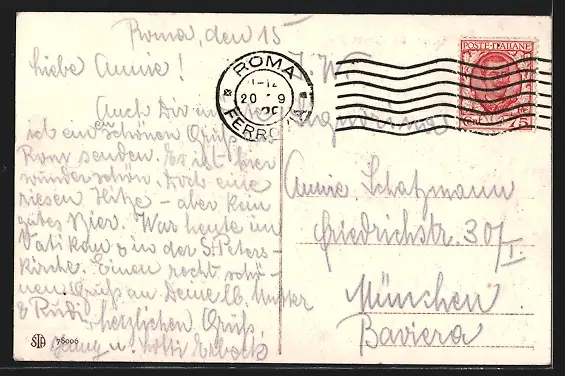 Roma, den 15
Liebe Annie!
Auch Dir
ich einen schönen Gruß aus
Rom senden. Es ist hier
wunderschön. Doch eine
riesen Hitze - aber kein
gutes Bier. War heute im
Vatikan & in der S. Peters-
kirche. Einen recht schö-
nen Gruß an Deine lb. Mutter
& Rudi, herzlichen Gruß,
u. Lotti
STA 76006
ROMA
20 9
FERROVIA
POSTE ITALIANE
75
Signorina
Annie Schatzmann
Friedrichstr. 30/I.
München
Baviera